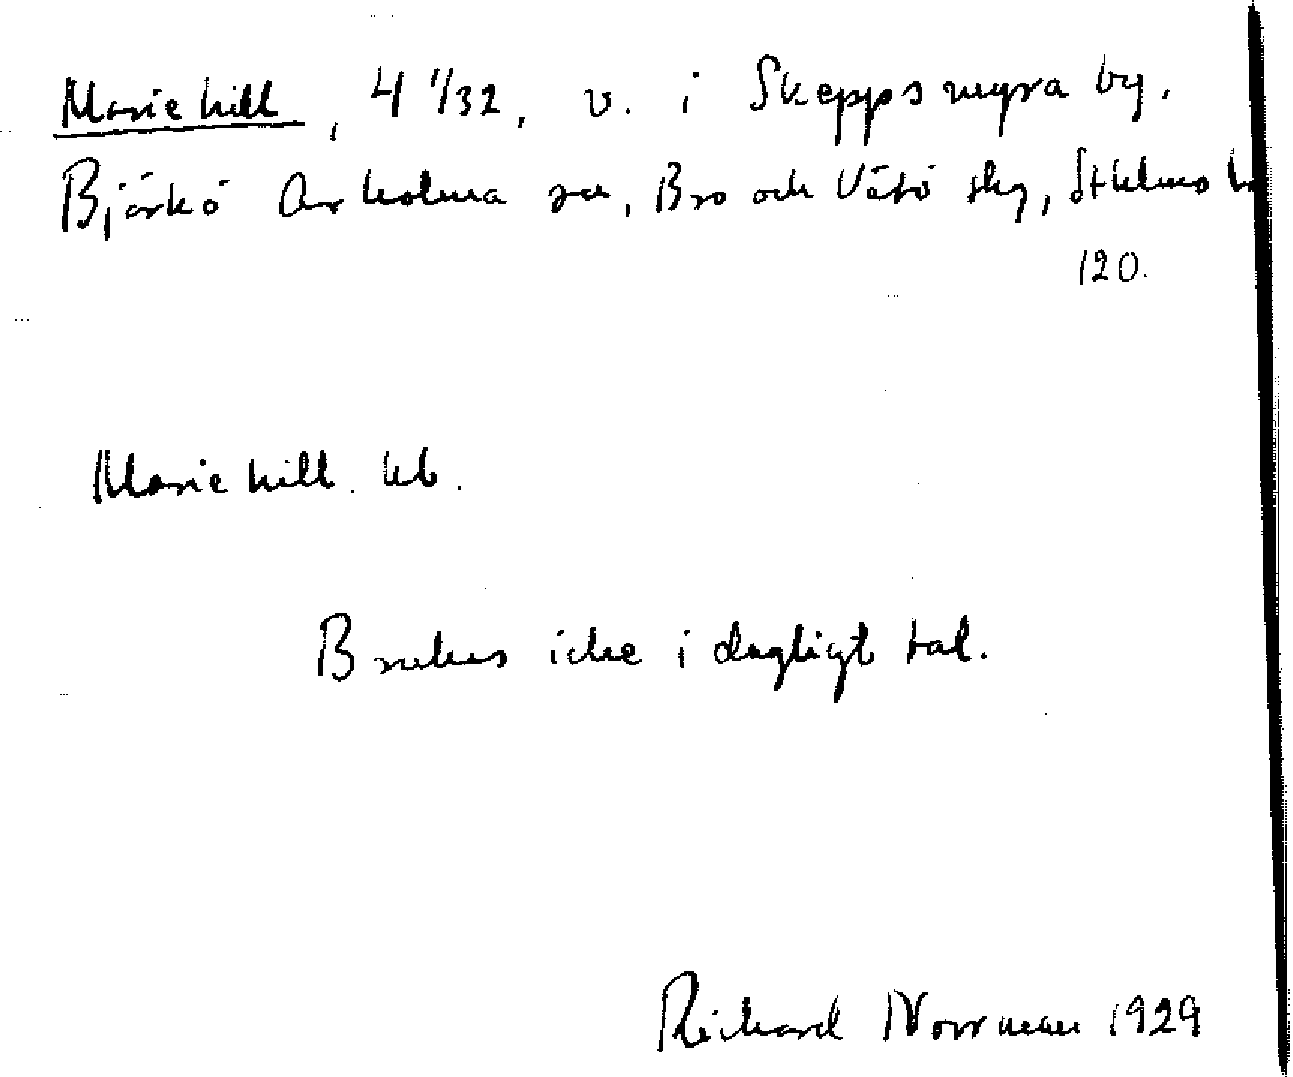 Mariehill, 4 1/32, v. i Skeppsmyra by.
Björkö Arholma sn, Bro och Vätö skg, Sthlms l
120.
Mariehill. kb.
Brukas icke i dagligt tal.
Richard Norrman 1929